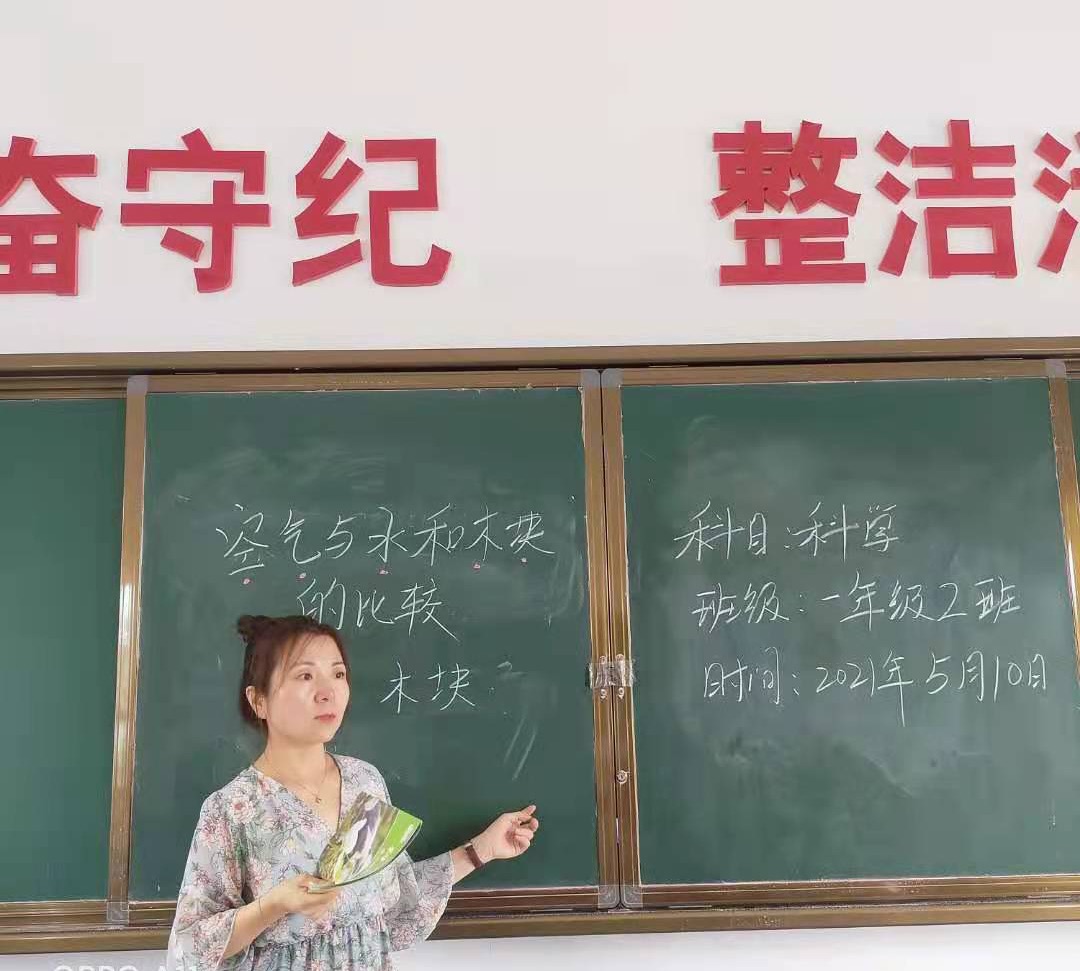 奋守纪 整洁
空气与水和木块
的比较
木块:
科目:科学
班级:一年级2班
时间:2021年5月10日